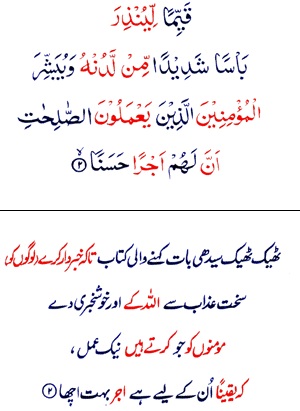 قَيِّمًا لِّيُنْذِرَ
بَاْسًا شَدِيْدًا مِّنْ لَّدُنْهُ وَيُبَشِّرَ
الْمُؤْمِنِيْنَ الَّذِيْنَ يَعْمَلُوْنَ الصّٰلِحٰتِ
اَنَّ لَهُمْ اَجْرًا حَسَنًا ۙ﴿۲﴾
ٹھیک ٹھیک سیدھی بات کہنے والی کتاب تاکہ خبردار کرے (لوگوں کو)
سخت عذاب سے اللہ کے اور خوشخبری دے
مومنوں کو جو کرتے ہیں نیک عمل ،
کہ یقیناً اُن کے لیے ہے اجر بہت اچھا ﴿۲﴾